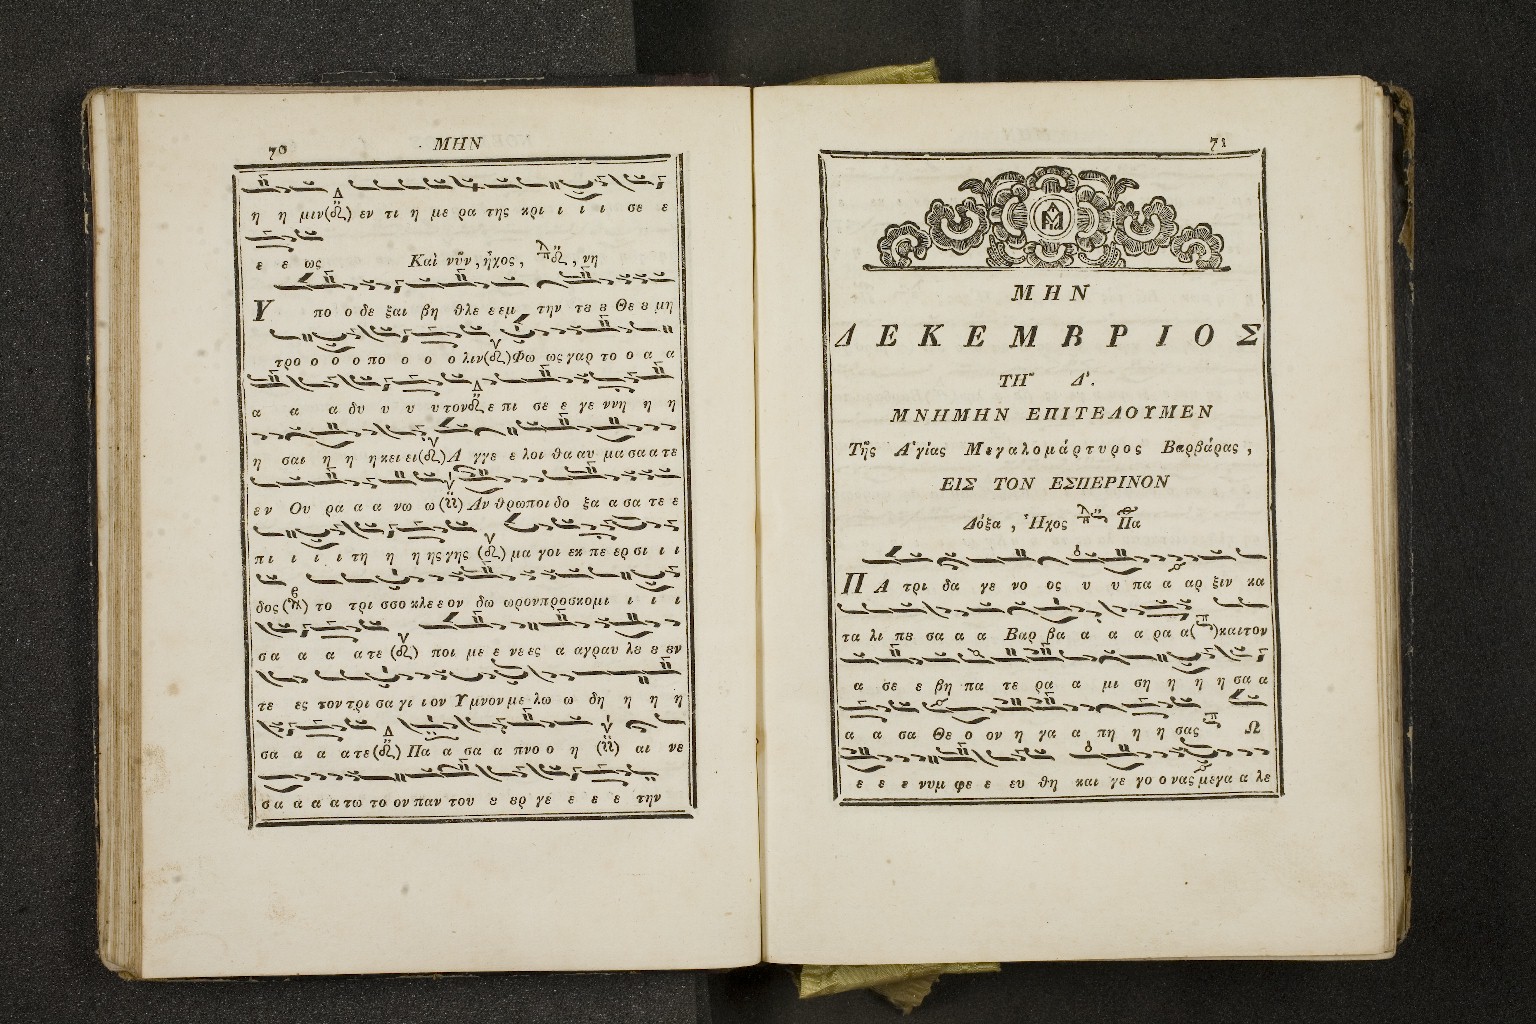 70
ΜΗΝ
η η μιν(δι) εν τι η με ρα της κρι ι ι ι σε ε
ε ε ως Καὶ νῦν, ἦχος, , νη
Υ πο ο δε ξαι βη θλε ε εμ την τȣ ȣ Θε ȣ μη
τρο ο ο ο πο ο ο ο λιν Φω ως γαρ το ο α α
α α α δυ υ υ υ τον ε πι σε ε γε ννη η η
η σαι η η η κει ει Α γγε ε λοι θα αυ μα σα α τε
εν Ου ρα α α νω ω Αν θρωποι δο ξα α σα τε ε
πι ι ι ι τη η η ης γης μα γοι εκ πε ερ σι ι ι
δος το τρι σσο κλε ε ον δω ωρον προσκομι ι ι ι
σα α α α τε ποι με ε νε ες α αγραυ λȣ ȣ εν
τε ες τον τρι σα γι ι ον Υμνον με λω ω δη η η η
σα α α α τε Πα α σα α πνο ο η αι νε
σα α α α τω το ον παν του ȣ ερ γε ε ε ε την
71
ΜΗΝ
ΔΕΚΕΜΒΡΙΟΣ
ΤΗ Δ'.
ΜΝΗΜΗΝ ΕΠΙΤΕΛΟΥΜΕΝ
Τῆς Ἁγίας Μεγαλομάρτυρος Βαρβάρας,
ΕΙΣ ΤΟΝ ΕΣΠΕΡΙΝΟΝ
Δόξα, Ἦχος Πα
ΠΑ τρι δα γε νο ος υ υ πα α αρ ξιν κα
τα λι πȣ σα α α Βαρ βα α α α ρα α και τον
α σε ε βη πα τε ρα α μι ση η η η σα α
α α σα Θε ο ον η γα α πη η η σας Ω
ε ε ε νυμ φε ε ευ θη και γε γο ο νας μεγα α λε